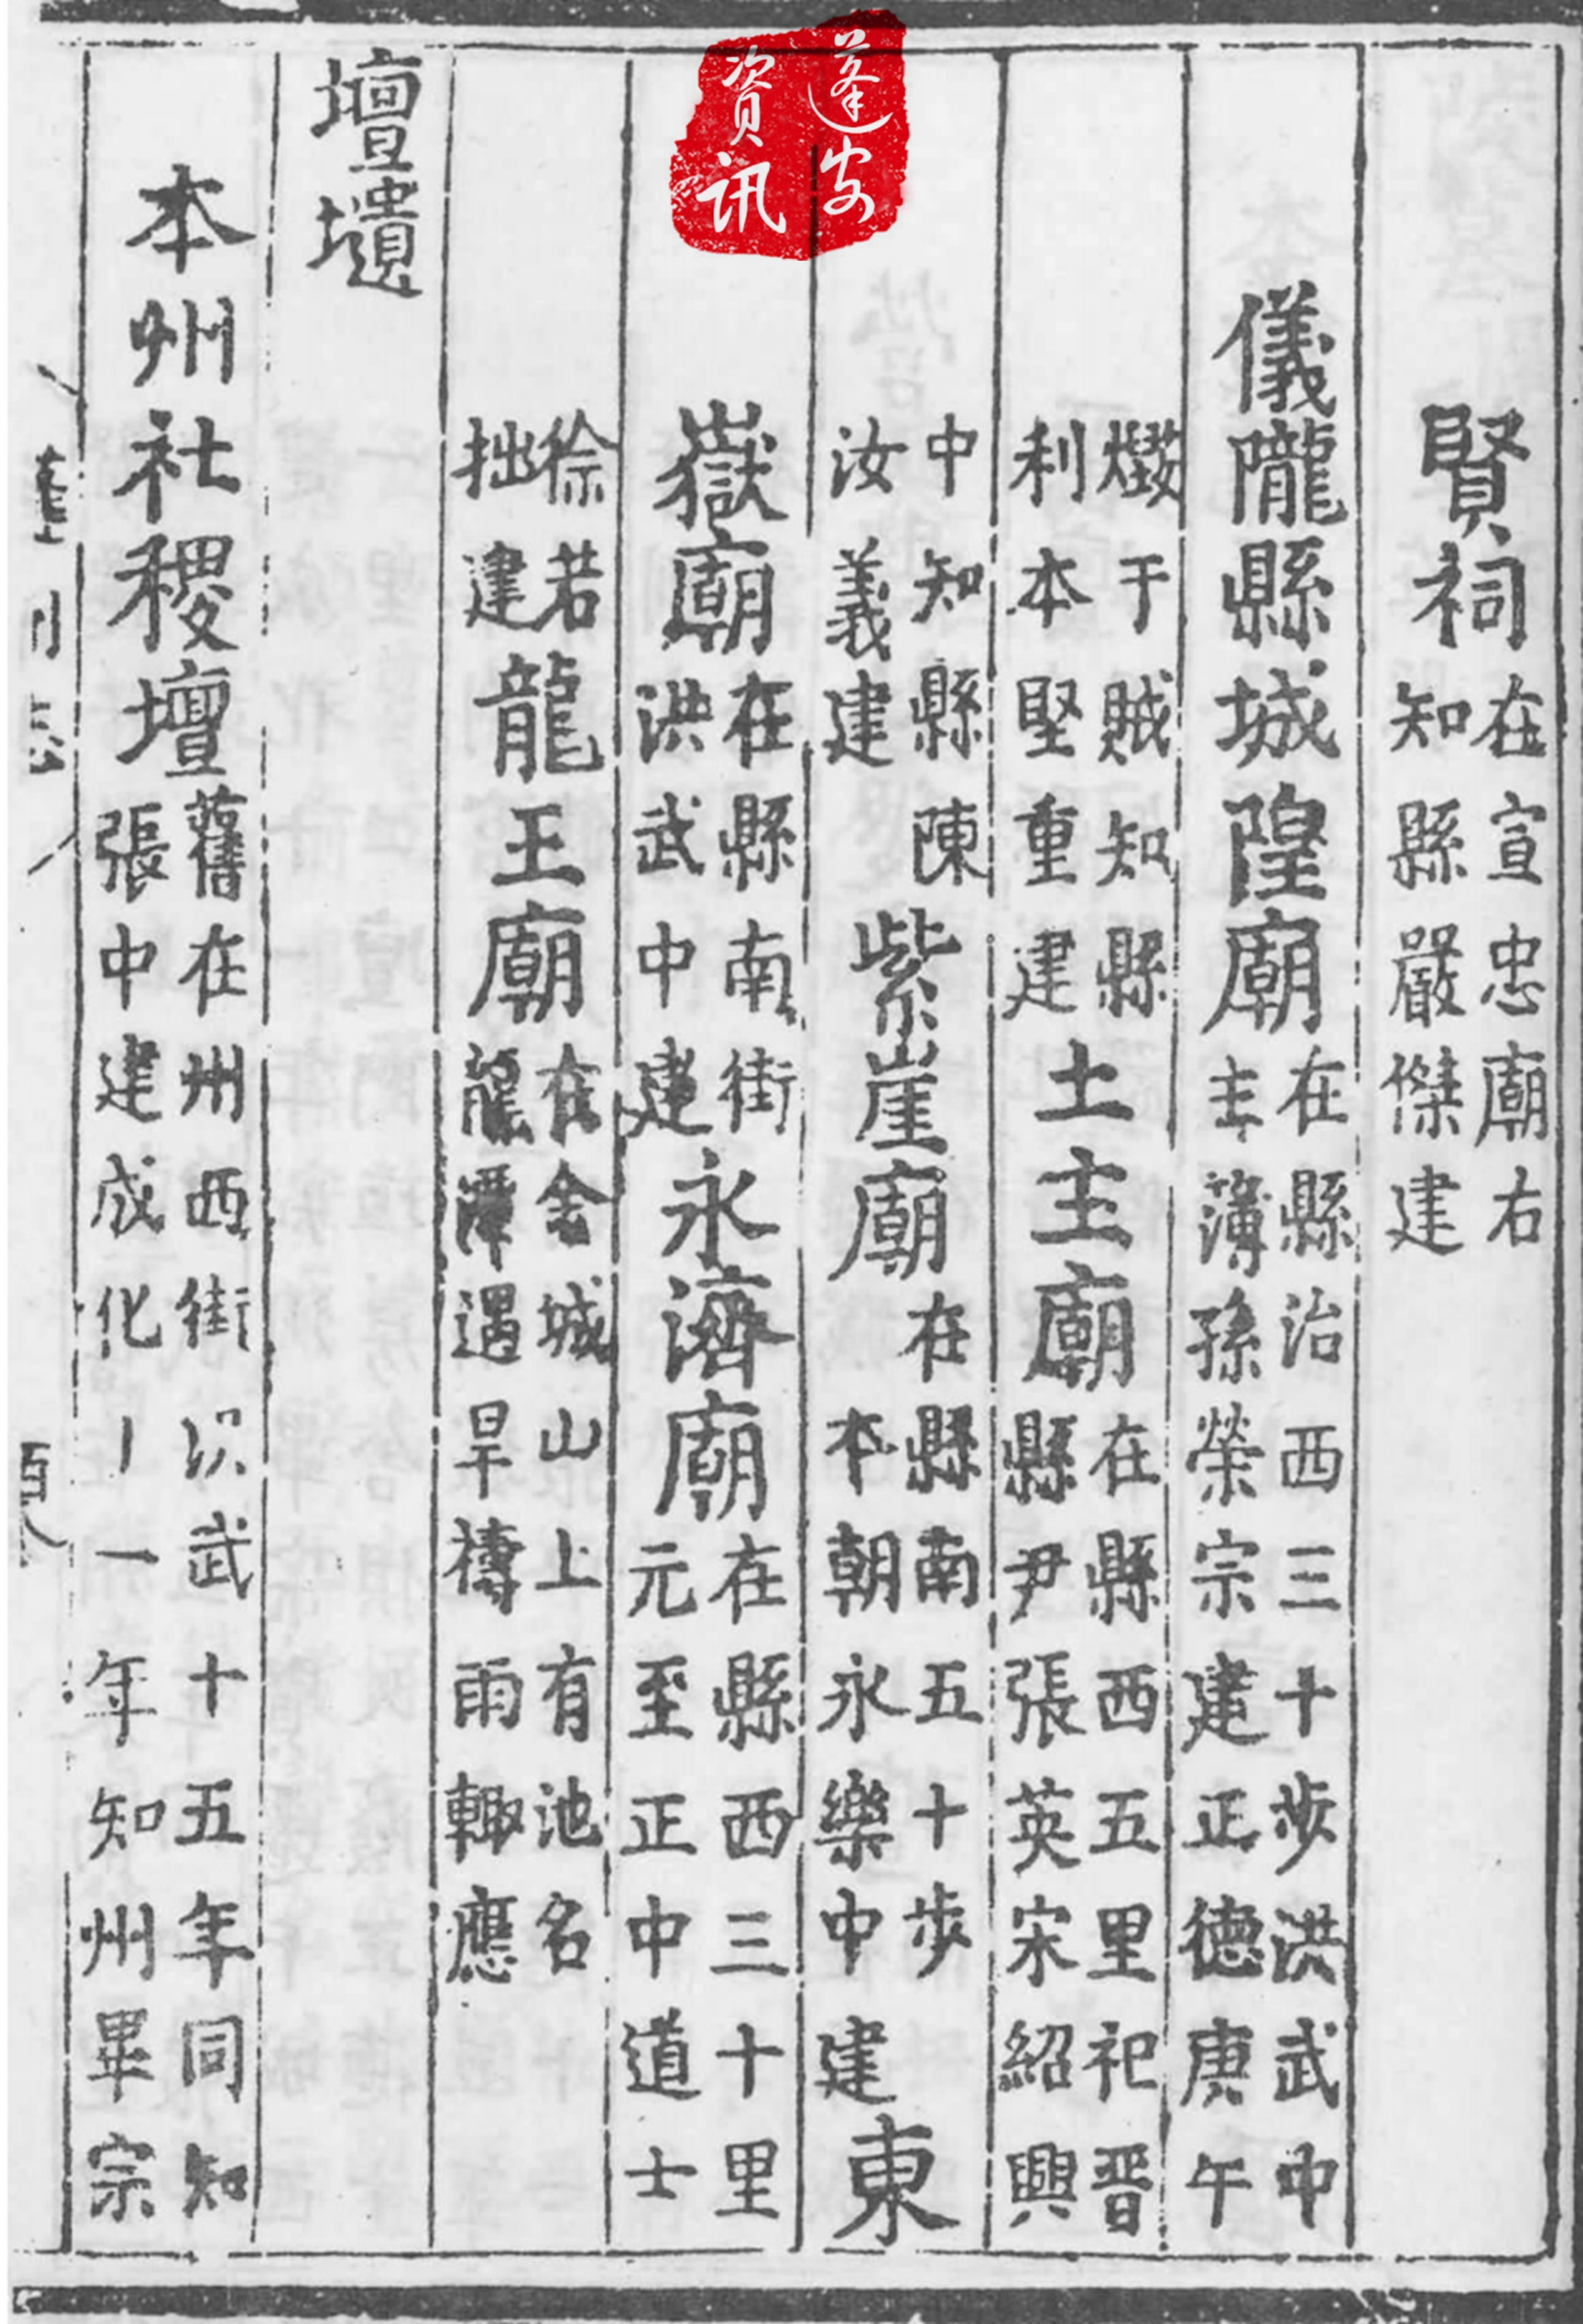 賢祠在宣忠廟右
知縣嚴傑建
儀隴縣城隍廟在縣治西三十步洪武中
主簿孫榮宗建正德庚午
燬于賊知縣
利本堅重建
土主廟在縣西五里祀晋
縣尹張英宋紹興
中知縣陳
汝義建
紫崖廟在縣南五十步
本朝永樂中建
東
嶽廟在縣南街
洪武中建
永濟廟在縣西三十里
元至正中道士
徐若
拙建
龍王廟在金城山上有池名
龍潭遇旱禱雨輙應
壇壝
本州社稷壇舊在州西街洪武十五年同知
張中建成化十一年知州畢宗
蓬州志
蓬安
资讯